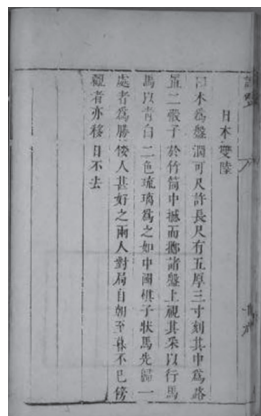 日本雙陸
以木為盤濶可尺許長尺有五厚三寸刻其中為路
置二骰子於竹筒中撼而擲諸盤上視其采以行馬
馬以青白二色琉璃為之如中國棋子狀馬先歸一
處者為勝倭人甚好之兩人對局自朝至暮不已傍
觀者亦移日不去